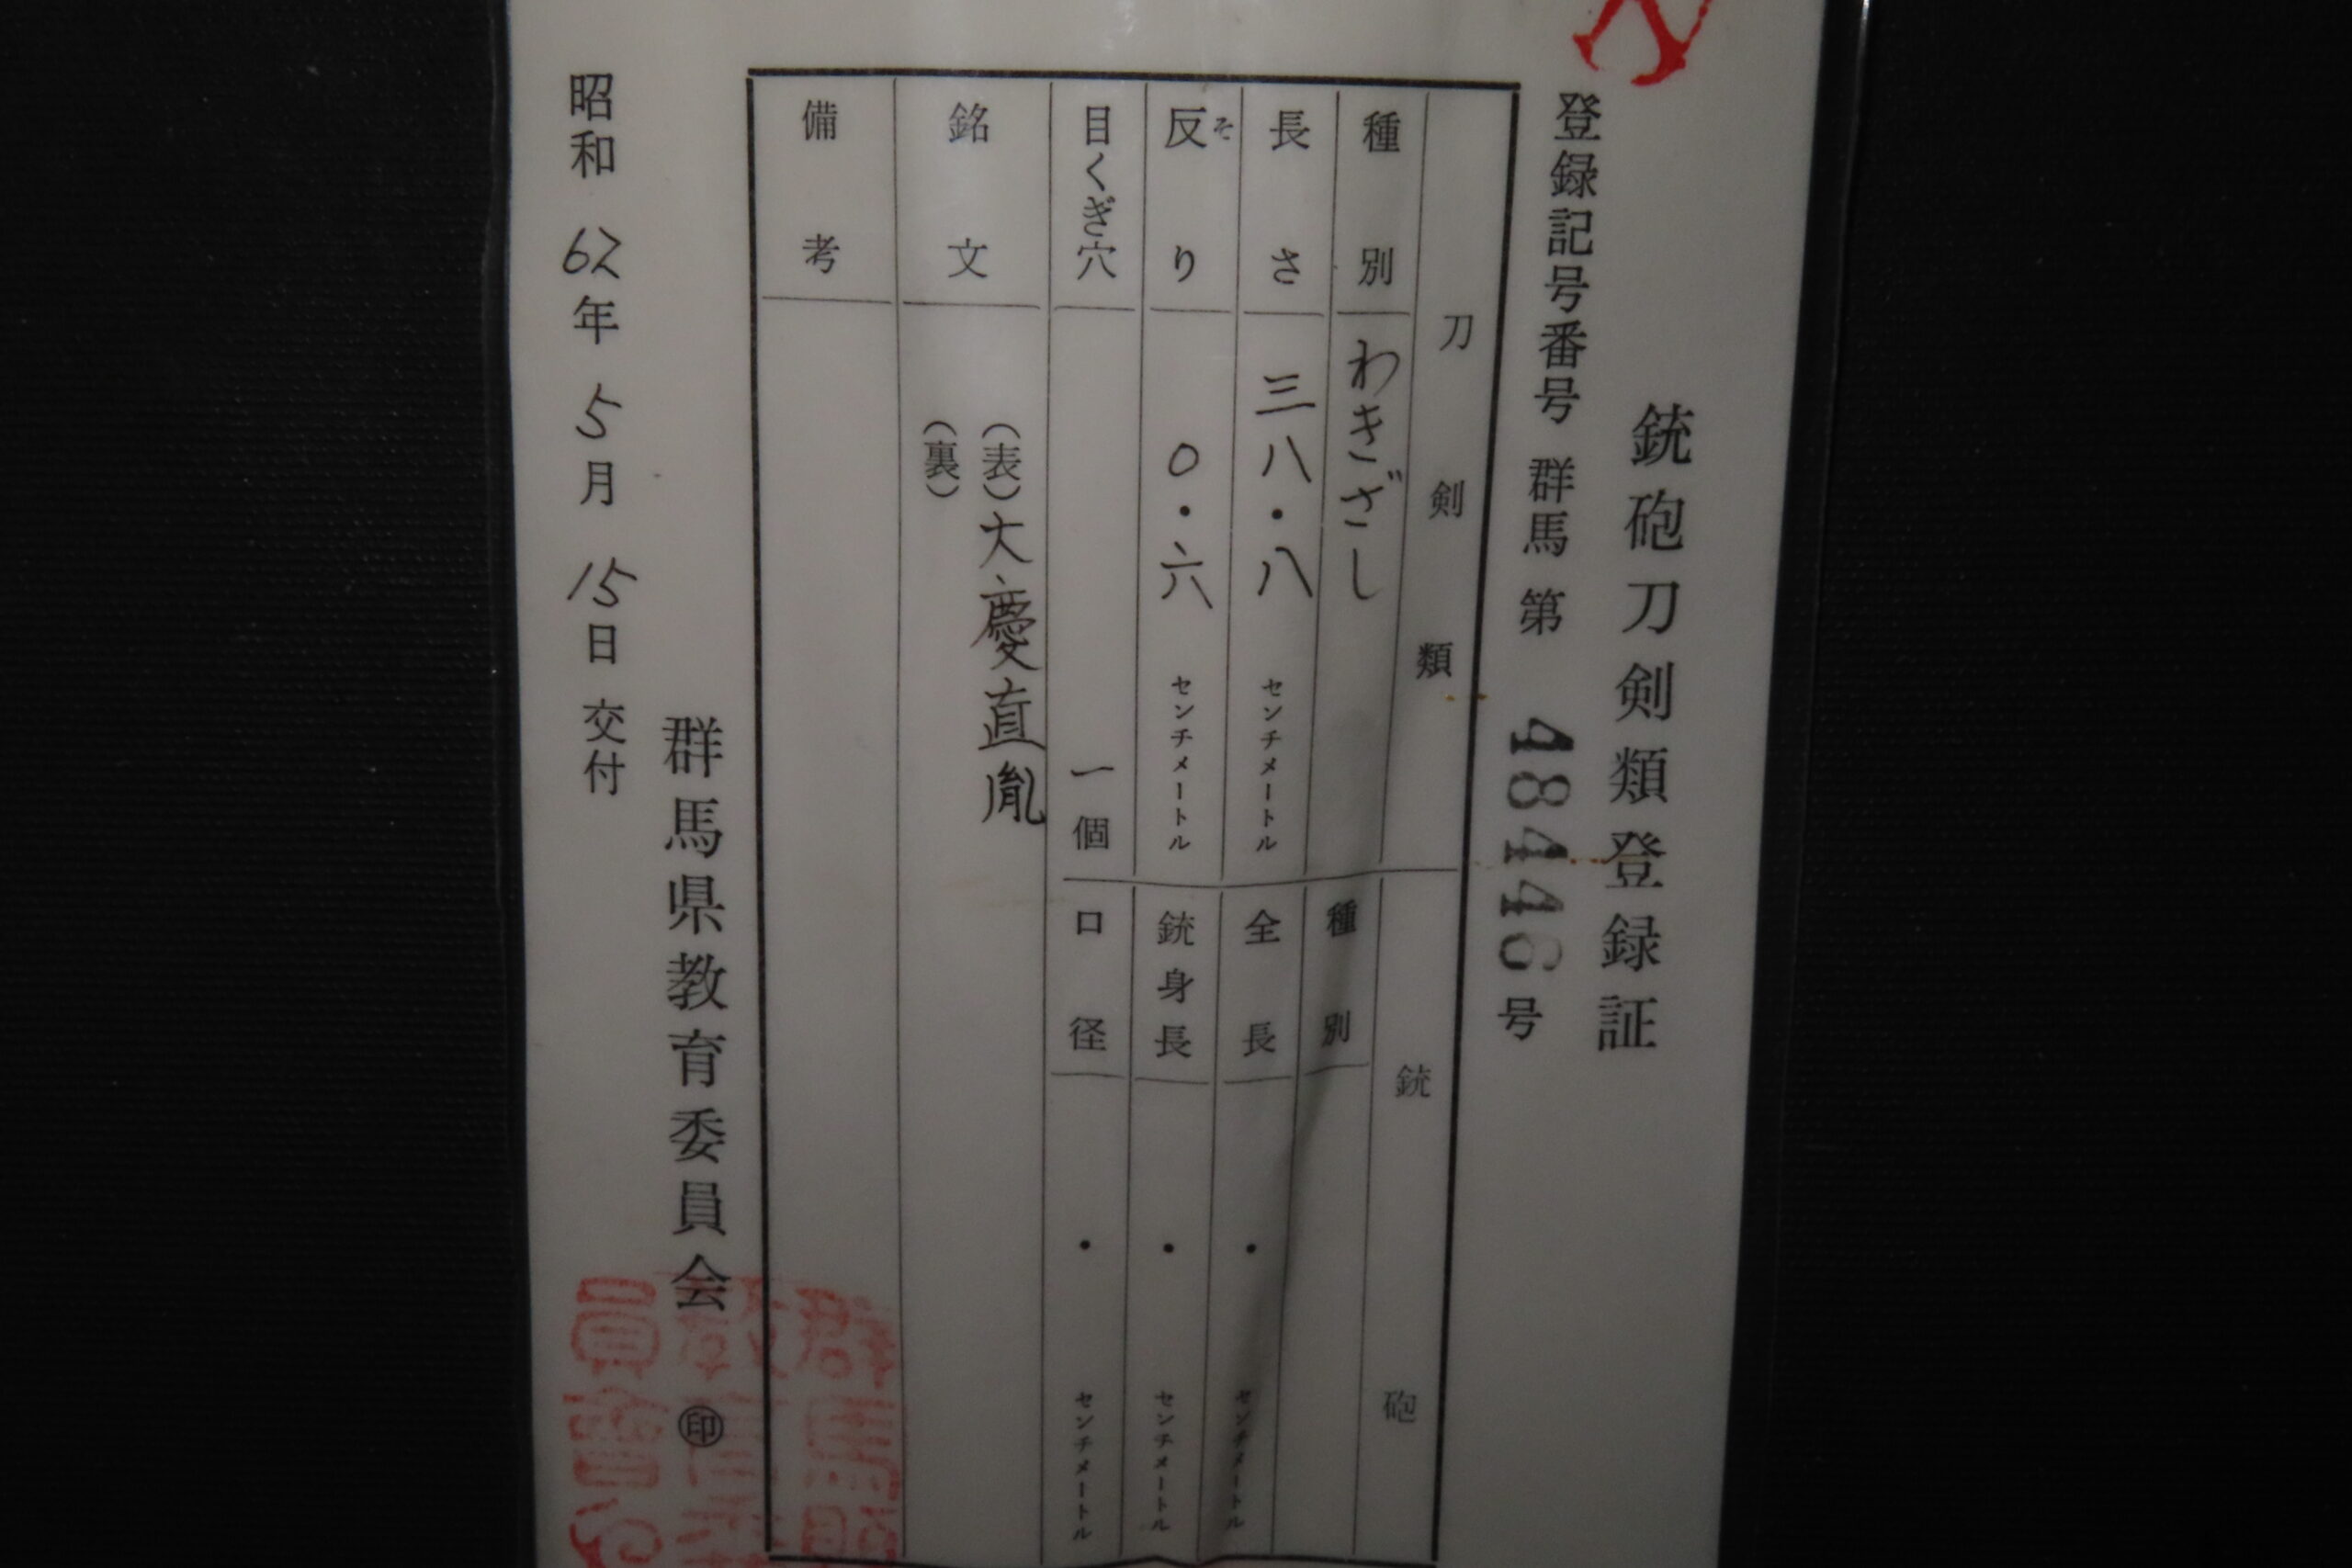 銃砲刀剣類登録証
登録記号番号 群馬 第 48446号
刀剣類
種別 わきざし
長さ 三八・八 センチメートル
反り そ 〇・六 センチメートル
目くぎ穴 一個
銘文 (表)大慶直胤
(裏)
備考
銃砲
種別
全長 ・ センチメートル
銃身長 ・ センチメートル
口径 ・ センチメートル
群馬県教育委員会 ㊞
昭和 62年 5月 15日 交付